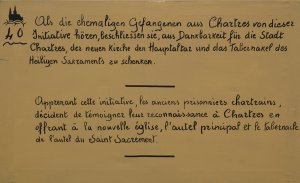 40
Als die ehemaligen Gefangenen aus Chartres von dieser
Initiative hören, beschliessen sie, aus Dankbarkeit für die Stadt
Chartres, der neuen Kirche den Hauptaltar und das Tabernakel des
Heiligen Sakraments zu schenken.
Apprenant cette initiative, les anciens prisonniers chartrains,
décident de témoigner leur reconnaissance à Chartres en
offrant à la nouvelle église, l'autel principal et le tabernacle
de l'autel du Saint Sacrement.